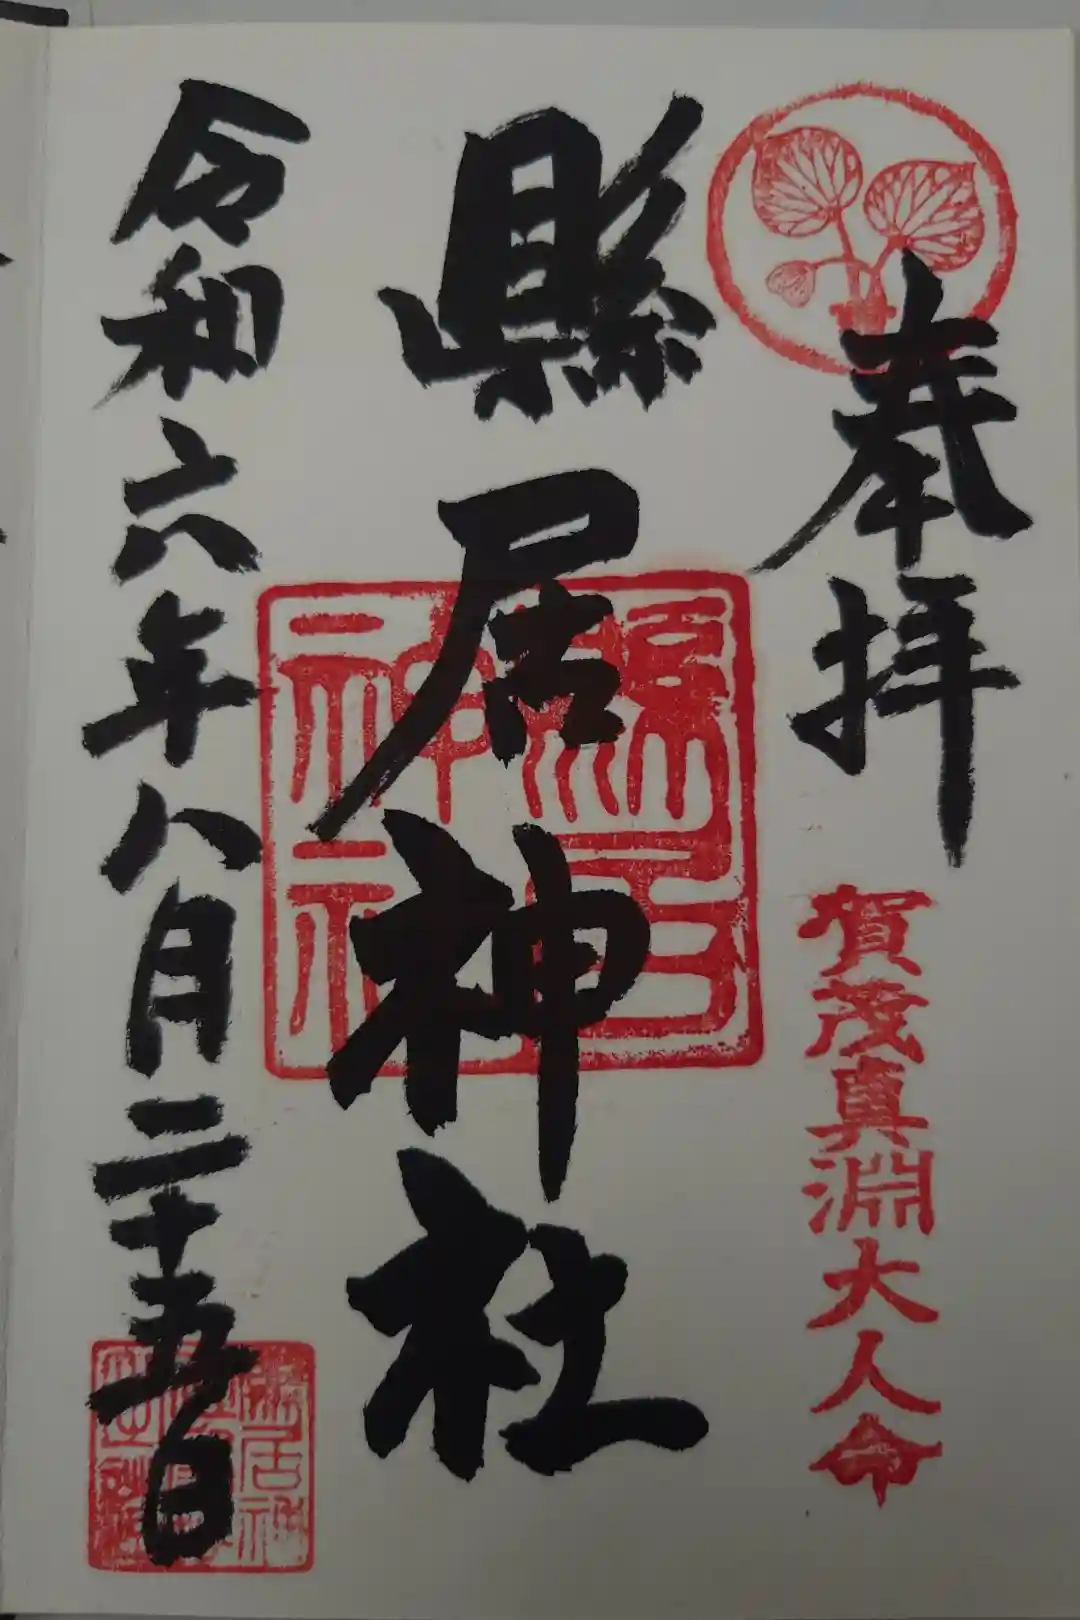 奉拝
賀茂真淵大人命
縣居神社
縣居神社
令和六年八月二十五日